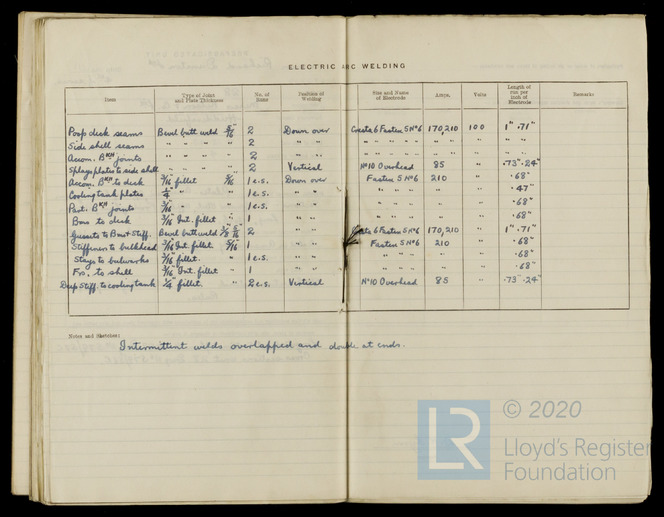 ELECTRIC ARC WELDING
Item Type of Joint and Plate Thickness No. of Runs Position of Welding Size and Name of Electrode Amps. Volts Length of run per inch of Electrode Remarks
Poop deck seams Bevel butt weld 5/16 2 Down over 6 Fastex 5 Nº6 170,210 100 1" .71"
Side shell seams " " " " 2 " " " " " " " " " "
Accom. BKH joints " " " 2 " " " " " " " " " "
Splay plates to side shell " " " " 2 Vertical Nº10 Overhead 85 " .73" .24"
Accom. BKH to deck 3/16 fillet 1 e.s. Down over Fastex 5 Nº6 210 " .68"
Cooling tank plates 1/4 " " 1 e.s. " " " " " " " .47"
Port. BKH joints 3/16 " " 1 e.s. " " " " " " " .68"
Bms to deck 3/16 Int. fillet " 1 " " " " " " " .68"
Gussets to Bms & Stiff. Bevel butt weld 3/8 5/16 2 " " 6 Fastex 5 Nº6 170,210 " 1" .71"
Stiffeners to bulkhead 3/16 Int. fillet 5/16 1 " " Fastex 5 Nº6 210 " .68"
Stays to bulwarks 3/16 fillet. " 1 e.s. " " " " " " " .68"
Frs. to shell 3/16 Int. fillet " 1 " " " " " " " .68"
Deep Stiff. to cooling tank 1/4 fillet. " 2 e.s. Vertical Nº10 Overhead 85 " .73" .24"
Notes and Sketches:
Intermittent welds overlapped and double at ends.
LR © 2020
Lloyd's Register
Foundation